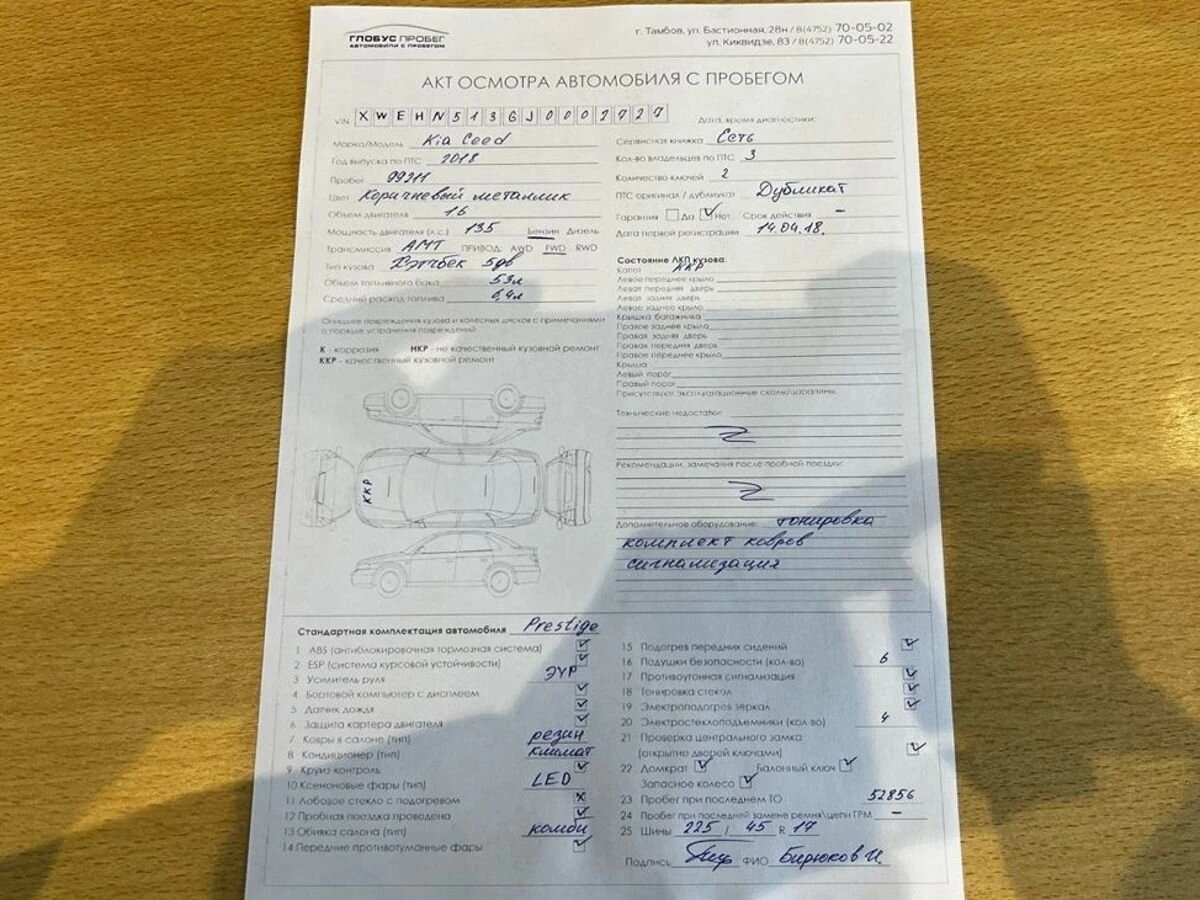 ГЛОБУС ПРОБЕГ
АВТОМОБИЛИ С ПРОБЕГОМ
г. Тамбов, ул. Бастионная, 28н / 8(4752) 70-05-02
ул. Киквидзе, 83 / 8(4752) 70-05-22
АКТ ОСМОТРА АВТОМОБИЛЯ С ПРОБЕГОМ
VIN XWEHN513GJ0002727
Марка/Модель Kia Ceed
Год выпуска по ПТС 2018
Пробег 99211
Цвет Корачневый металлик
Объем двигателя 16
Мощность двигателя (л.с.) 135 Бензин Дизель
Трансмиссия АМТ ПРИВОД: AWD FWD RWD
Тип кузова Хэтчбек 5дв
Объем топливного бака 53л
Средний расход топлива 6,4л
Опишите повреждения кузова и колесных дисков с примечаниями
о порядке устранения повреждений
К - коррозия НКР - не качественный кузовной ремонт
ККР - качественный кузовной ремонт
ККР
Дата, время диагностики:
Сервисная книжка Сеть
Кол-во владельцев по ПТС 3
Количество ключей 2
ПТС оригинал / дубликат Дубликат
Гарантия Да Нет Срок действия –
Дата первой регистрации 14.04.18.
Состояние ЛКП кузова:
Капот ККР
Левое переднее крыло
Левая передняя дверь
Левая задняя дверь
Левое заднее крыло
Крышка багажника
Правое заднее крыло
Правая задняя дверь
Правая передняя дверь
Правое переднее крыло
Крыша
Левый порог
Правый порог
Присутствуют эксплуатационные сколы/царапины.
Технические недостатки:
Рекомендации, замечания после пробной поездки:
Дополнительное оборудование: тонировка
комплект ковров
сигнализация
Стандартная комплектация автомобиля Prestige
1 ABS (антиблокировочная тормозная система)
2 ESP (система курсовой устойчивости)
3 Усилитель руля ЭУР
4 Бортовой компьютер с дисплеем
5 Датчик дождя
6 Защита картера двигателя
7 Ковры в салоне (тип) резин
8 Кондиционер (тип) климат
9 Круиз контроль
10 Ксеноновые фары (тип) LED
11 Лобовое стекло с подогревом
12 Пробная поездка проведена
13 Обивка салона (тип) комби
14 Передние противотуманные фары
15 Подогрев передних сидений
16 Подушки безопасности (кол-во) 6
17 Противоугонная сигнализация
18 Тонировка стекол
19 Электроподогрев зеркал
20 Электростеклоподъемники (кол-во) 4
21 Проверка центрального замка
(открытие дверей ключами)
22 Домкрат Балонный ключ
Запасное колесо
23 Пробег при последнем ТО 52856
24 Пробег при последней замене ремня\цепи ГРМ –
25 Шины 225 / 45 R 17
Подпись ФИО Бирюков И.